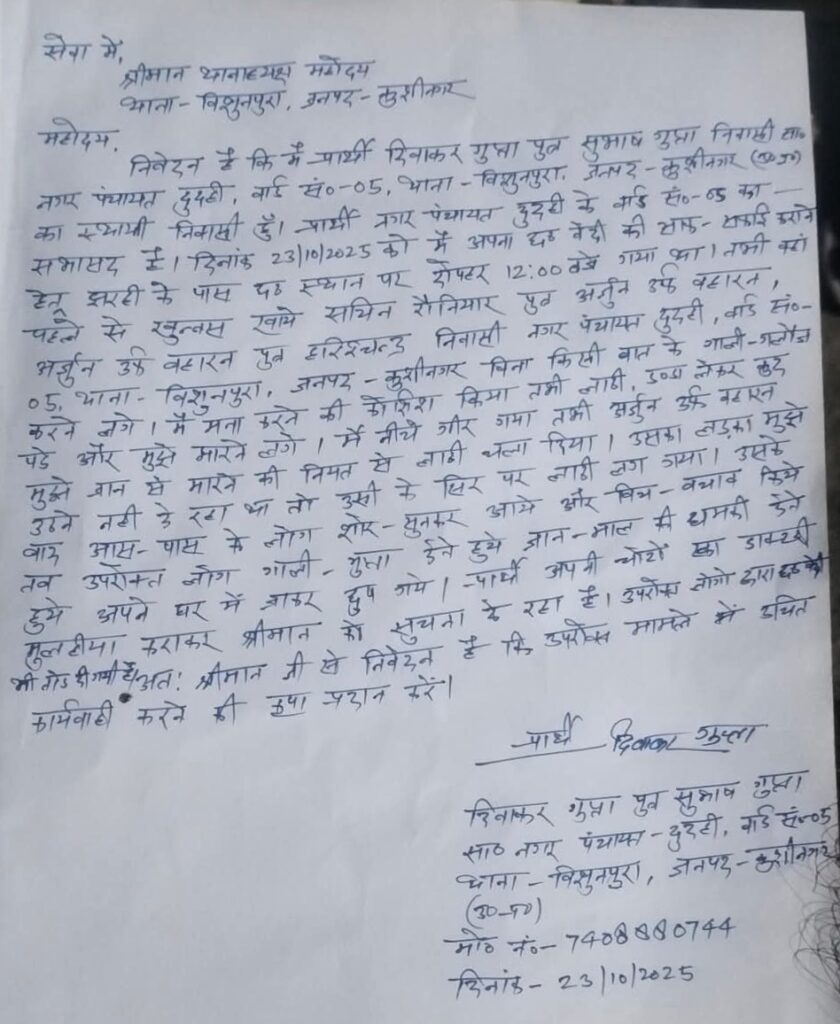 सेवा में,
श्रीमान थानाध्यक्ष महोदय
थाना - विशुनपुरा, जनपद - कुशीनगर
महोदय,
निवेदन है कि मैं प्रार्थी दिवाकर गुप्ता पुत्र सुभाष गुप्ता निवासी सा०
नगर पंचायत दुदही, वार्ड सं०-05, थाना - विशुनपुरा, जनपद - कुशीनगर (उ०प्र०)
का स्थायी निवासी हूँ। प्रार्थी नगर पंचायत दुदही के वार्ड सं०-05 का
सभासद है। दिनांक 23/10/2025 को मैं अपना छठ वेदी की साफ-सफाई कराने
हेतू झरही के पास छठ स्थान पर दोपहर 12:00 बजे गया था। तभी वहां
पहले से खुन्नस खाये सचिन रौनियार पुत्र अर्जुन उर्फ बहारन,
अर्जुन उर्फ बहारन पुत्र हरिश्चन्द्र निवासी नगर पंचायत दुदही, वार्ड सं०-
05, थाना - विशुनपुरा, जनपद - कुशीनगर बिना किसी बात के गाली-गलौज
करने लगे। मैं मना करने की कोशिश किया तभी लाठी, डण्डा लेकर कूद
पडे और मुझे मारने लगे। मैं नीचे गीर गया तभी अर्जुन उर्फ बहारन
मुझे जान से मारने की नियत से लाठी चला दिया। उसका लड़का मुझे
उठने नही दे रहा था तो उसी के सिर पर लाठी लग गया। उसके
बाद आस-पास के लोग शोर-सुनकर आये और बिच-बचाव किये
तब उपरोक्त लोग गाली-गुप्ता देते हुये जान-माल की धमकी देते
हुये अपने घर में जाकर छुप गये। प्रार्थी अपनी चोटो का डाक्टरी
मुलाहीया कराकर श्रीमान को सुचना दे रहा है। उपरोक्त लोगो द्वारा छठ वेदी
भी तोड दी गयी है। अतः श्रीमान जी से निवेदन है कि उपरोक्त मामले में उचित
कार्यवाही करने की कृपा प्रदान करें।
प्रार्थी दिवाकर गुप्ता
दिवाकर गुप्ता पुत्र सुभाष गुप्ता।
सा० नगर पंचायत - दुदही, वार्ड सं०-05
थाना - विशुनपुरा, जनपद - कुशीनगर
(उ०-प्र०)
मो० नं० - 7408880744
दिनांक - 23/10/2025